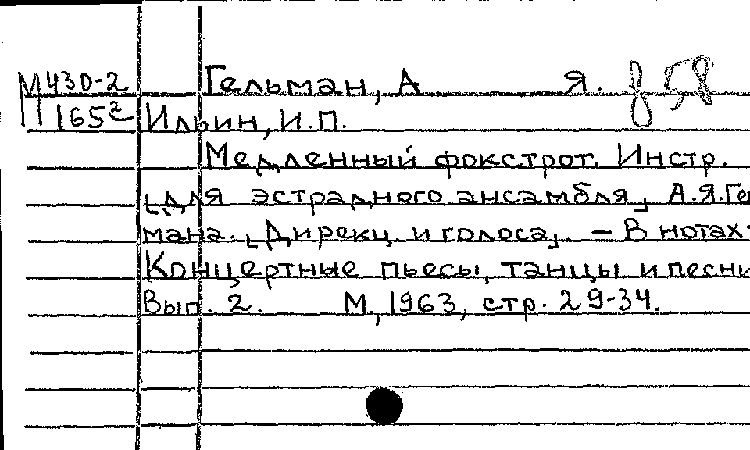 М430-2 Гельман, А Я. 858
165² Ильин, И.П.
Медленный фокстрот. Инстр.
[для эстрадного ансамбля] А.Я.Ге
мана. [Дирекц. и голоса]. — В нотах:
Концертные пьесы, танцы и песни
Вып. 2. М., 1963, стр. 29-34.